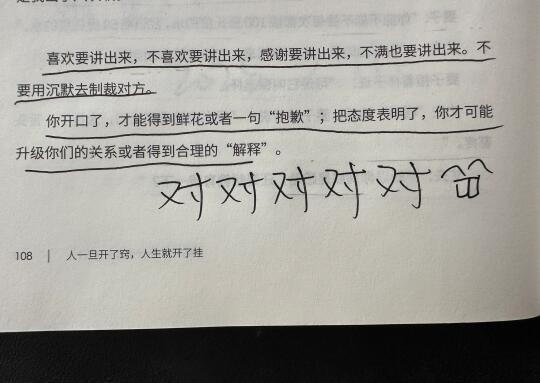 喜欢要讲出来，不喜欢要讲出来，感谢要讲出来，不满也要讲出来。不
要用沉默去制裁对方。
你开口了，才能得到鲜花或者一句“抱歉”；把态度表明了，你才可能
升级你们的关系或者得到合理的“解释”。
对对对对对
108 | 人一旦开了窍，人生就开了挂